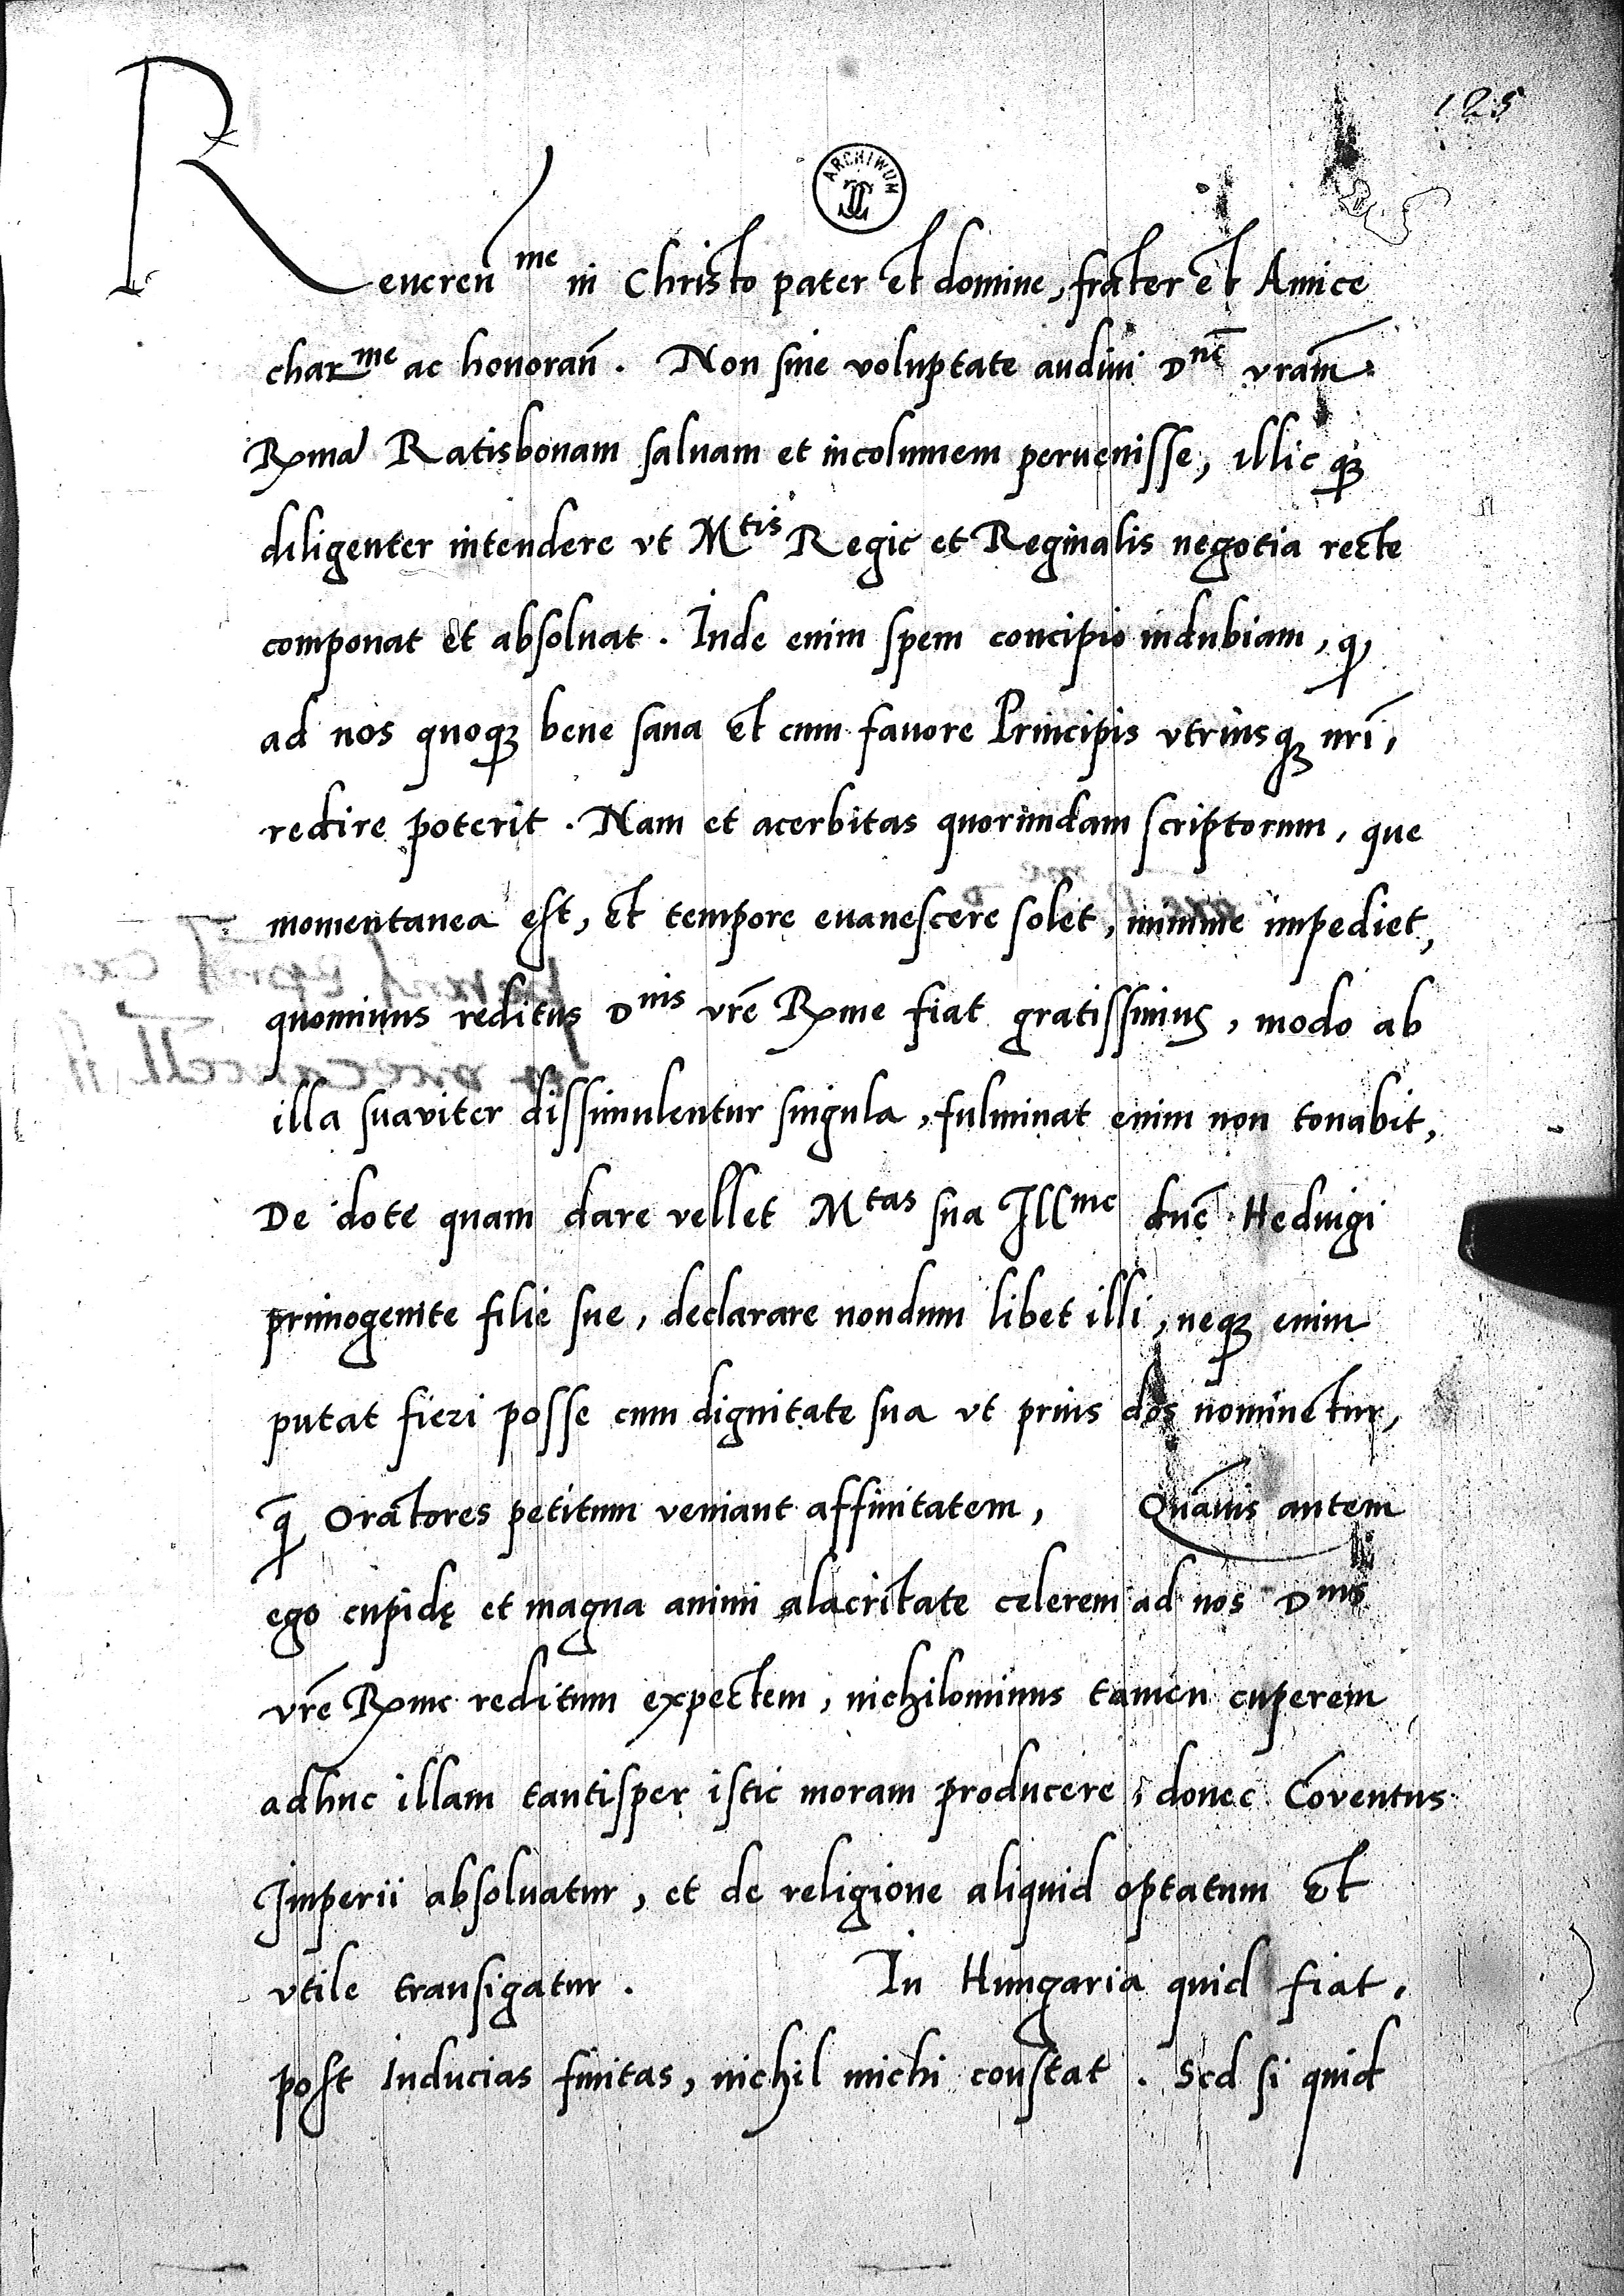 125
ARCHIWUM
Reueren͂ me in Christo pater et domine, frater et Amice
char me ac honoran͂. Non sine voluptate audiui D nē vram̄
Rxma Ratisbonam saluam et incolumem peruenisse, illic qꝫ
diligenter intendere vt M tis Regie et Reginalis negotia recte
componat et absoluat. Inde enim spem concipio indubiam, ꝙ
ad nos quoqꝫ bene sana et cum fauore Principis vtriusqꝫ nrī,
redire poterit. Nam et acerbitas quorundam scriptorum, que
momentanea est, et tempore euanescere solet, minime impediet,
quominus reditus D nis vrē Rxme fiat gratissimus, modo ab
illa suaviter dissimulentur singula, fulminat enim non tonabit,
De dote quam dare vellet M tas sua Ill me dnē Heduigi
primogenite filie sue, declarare nondum libet illi, neqꝫ enim
putat fieri posse cum dignitate sua vt prius dos nominetur,
ꝙ̄ Oratores petitum veniant affinitatem, Quāuis autem
ego cupidę et magna animi alacritate celerem ad nos D nis
vrē Rxme reditum expectem, nichilominus tamen cuperem
adhuc illam tantisper istic moram producere, donec Coventus
Imperii absoluatur, et de religione aliquid optatum et
vtile transigatur. In Hungaria quid fiat,
post Inducias finitas, nichil michi constat. Sed si quid